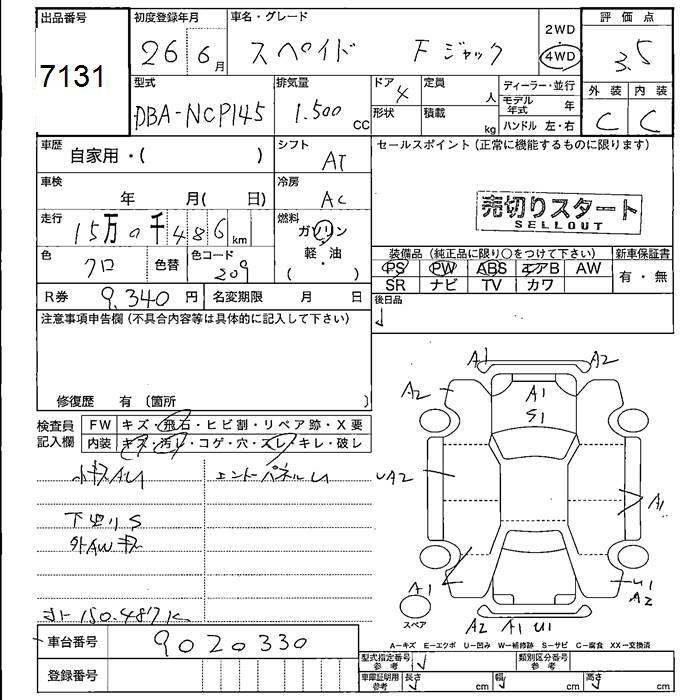 出品番号 初度登録年月 車名・グレード 2WD 評価点
7131 26 6月 スペイド Fジャック 4WD 3.5
型式 排気量 ドア 4 定員 人 ディーラー・並行 外装 内装
DBA-NCP145 1.500 CC 形状 積載 kg モデル年式 年 C C
ハンドル 左・右
車歴 自家用・( ) シフト AT セールスポイント (正常に機能するものに限ります)
車検 年 月( 日) 冷房 AC
売切りスタート
SELLOUT
走行 15万0千486km 燃料 ガソリン
軽・油
( )
色 クロ 色替 色コード 209
装備品 (純正品に限り○をつけて下さい) 新車保証書
PS PW ABS エアB AW 有・無
SR ナビ TV カワ
R券 9,340円 名変期限 月 日 後日品
注意事項申告欄 (不具合内容等は具体的に記入して下さい)
修復歴 有 〔箇所 〕
検査員記入欄 FW キズ・飛石・ヒビ割・リペア跡・X要
内装 キズ・汚レ・コゲ・穴・スレ・キレ・破レ
小キズAU エントーパネルU
下廻りS
外AWキズ
150.487K
A1 A2
A2 A1
S1
UA2 A1
A1 U1
A2
スペア
A2 A1 U1
A-キズ E-エクボ U-凹み W-補修跡 S-サビ C-腐食 XX-交換済
車台番号 9020330 型式指定番号 参考 類別区分番号 参考
登録番号 車庫証明用 参考 長さ cm 幅 cm 高さ cm